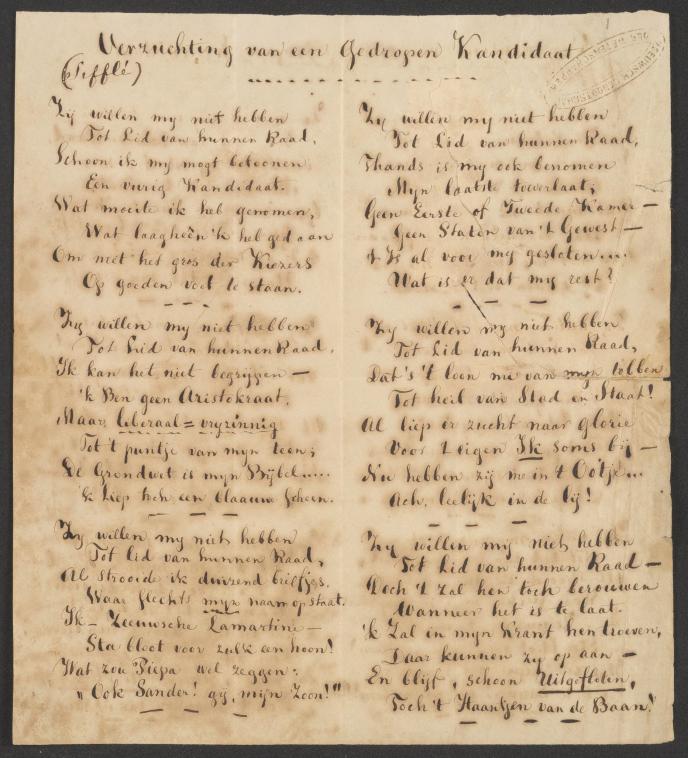 Verzuchting van een Gedropen Kandidaat
(Sifflé)
Zij willen my niet hebben
Tot Lid van hunnen Raad,
Schoon ik my mogt betoonen
Een vurig Kandidaat.
Wat moeite ik heb genomen,
Wat laagheên 'k heb gedaan
Om met het gros der Kiezers
Op goeden voet te staan.
Zy willen my niet hebben
Tot Lid van hunnen Raad,
Ik kan het niet begrijpen —
'k Ben geen Aristokraat,
Maar liberaal = vryzinnig
Tot 't puntje van myn teen;
De Grondwet is myn Bijbel....
'k Liep toch een blaauwe scheen.
Zy willen my niet hebben
Tot lid van hunnen Raad,
Al strooide ik duizend briefjes,
Waar slechts myn naam op staat.
Ik — Zeeuwsche Lamartine —
Sta bloot voor zulk een hoon!
Wat zou Piepa wel zeggen:
"Ook Sander! gij, mijn Zoon!"
Zy willen my niet hebben
Tot Lid van hunnen Raad,
Thands is my ook benomen
Myn laatste toeverlaat;
Geen Eerste of Tweede Kamer —
Geen Staten van 't Gewest —
't Is al voor my gesloten....
Wat is er dat my rest?
Zy willen my niet hebben
Tot Lid van hunnen Raad,
Dat's 't loon nu van myn tobben
Tot heil van Stad en Staat!
Al liep er zucht naar glorie
Voor 't eigen Ik soms by —
Nu hebben zij me in 't Ootje...
Ach, leelijk in de lij!
Zy willen my niet hebben
Tot Lid van hunnen Raad —
Doch 't zal hen toch berouwen
Wanneer het is te laat.
'k Zal in myn Krant hen troeven,
Daar kunnen zy op aan —
En blijf, schoon Uitgefloten,
Toch 't Haantjen van de Baan!